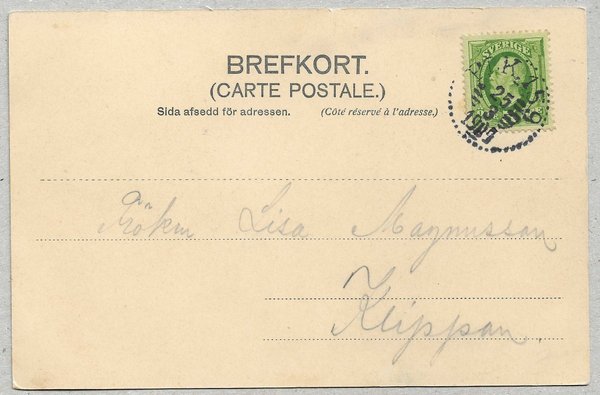 BREFKORT.
(CARTE POSTALE.)
Sida afsedd för adressen. (Côté réservé à l'adresse.)
SVERIGE
25
Fröken Lisa Magnusson
Klippan.